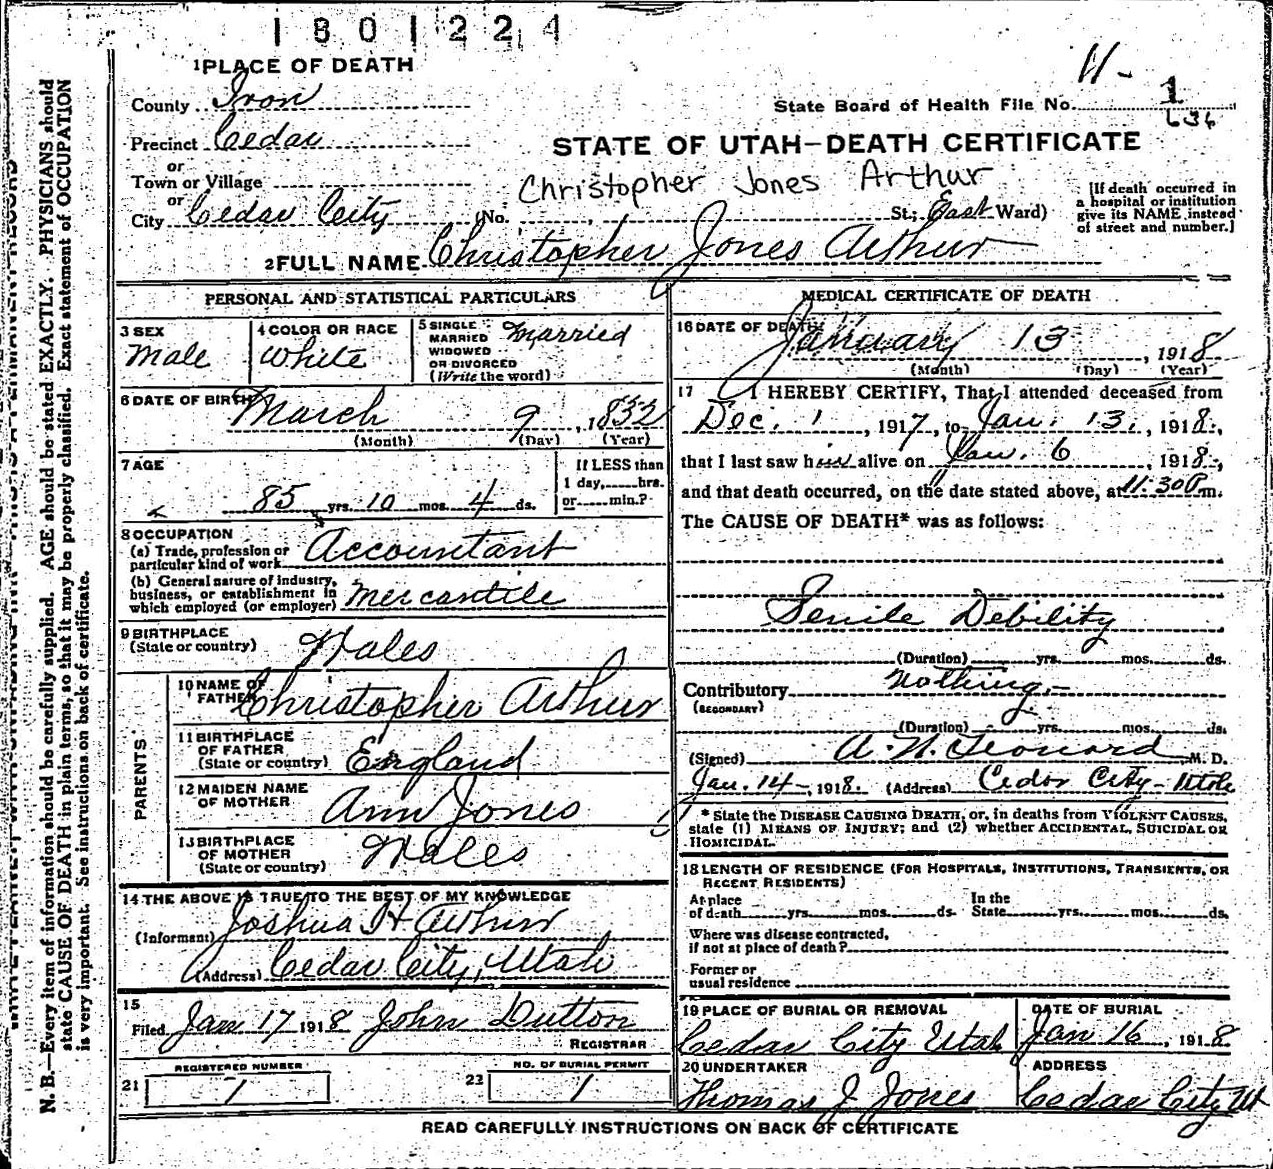 1801224
1 PLACE OF DEATH
County Iron
Precinct Cedar
or
Town or Village
or
City Cedar City (No. St; East Ward)
H-
State Board of Health File No. 1
636
STATE OF UTAH—DEATH CERTIFICATE
Christopher Jones Arthur
[If death occurred in
a hospital or institution
give its NAME instead
of street and number.]
2 FULL NAME Christopher Jones Arthur
PERSONAL AND STATISTICAL PARTICULARS
3 SEX
Male
4 COLOR OR RACE
White
5 SINGLE
MARRIED
WIDOWED
OR DIVORCED
(Write the word)
Married
6 DATE OF BIRTH
March 9, 1832
(Month) (Day) (Year)
7 AGE
85 yrs. 10 mos. 4 ds.
If LESS than
1 day, hrs.
or min.?
8 OCCUPATION
(a) Trade, profession or
particular kind of work Accountant
(b) General nature of industry,
business, or establishment in
which employed (or employer) Mercantile
9 BIRTHPLACE
(State or country) Wales
PARENTS
10 NAME OF
FATHER Christopher Arthur
11 BIRTHPLACE
OF FATHER
(State or country) England
12 MAIDEN NAME
OF MOTHER Ann Jones
13 BIRTHPLACE
OF MOTHER
(State or country) Wales
14 THE ABOVE IS TRUE TO THE BEST OF MY KNOWLEDGE
(Informant) Joshua H Arthur
(Address) Cedar City, Utah
15
Filed Jan 17 1918 John Dutton
REGISTRAR
REGISTERED NUMBER
21 1
NO. OF BURIAL PERMIT
22 1
MEDICAL CERTIFICATE OF DEATH
16 DATE OF DEATH
January 13, 1918
(Month) (Day) (Year)
17 I HEREBY CERTIFY, That I attended deceased from
Dec. 1, 1917, to Jan. 13., 1918.,
that I last saw him alive on Jan. 6, 1918.,
and that death occurred, on the date stated above, at 11:30 P.m.
The CAUSE OF DEATH* was as follows:
Senile Debility
(Duration) yrs. mos. ds.
Contributory Nothing.-
(SECONDARY)
(Duration) yrs. mos. ds.
(Signed) A. N. Leonard M. D.
Jan. 14-, 1918. (Address) Cedar City-Utah
* State the DISEASE CAUSING DEATH, or, in deaths from VIOLENT CAUSES,
state (1) MEANS OF INJURY; and (2) whether ACCIDENTAL, SUICIDAL OR
HOMICIDAL.
18 LENGTH OF RESIDENCE (FOR HOSPITALS, INSTITUTIONS, TRANSIENTS, OR
RECENT RESIDENTS)
At place
of death yrs. mos. ds.
In the
State yrs. mos. ds.
Where was disease contracted,
if not at place of death?
Former or
usual residence
19 PLACE OF BURIAL OR REMOVAL
Cedar City Utah
DATE OF BURIAL
Jan 16, 1918
20 UNDERTAKER
Thomas J Jones
ADDRESS
Cedar City Ut
READ CAREFULLY INSTRUCTIONS ON BACK OF CERTIFICATE
N. B.—Every item of information should be carefully supplied. AGE should be stated EXACTLY. PHYSICIANS should
state CAUSE OF DEATH in plain terms, so that it may be properly classified. Exact statement of OCCUPATION
is very important. See instructions on back of certificate.